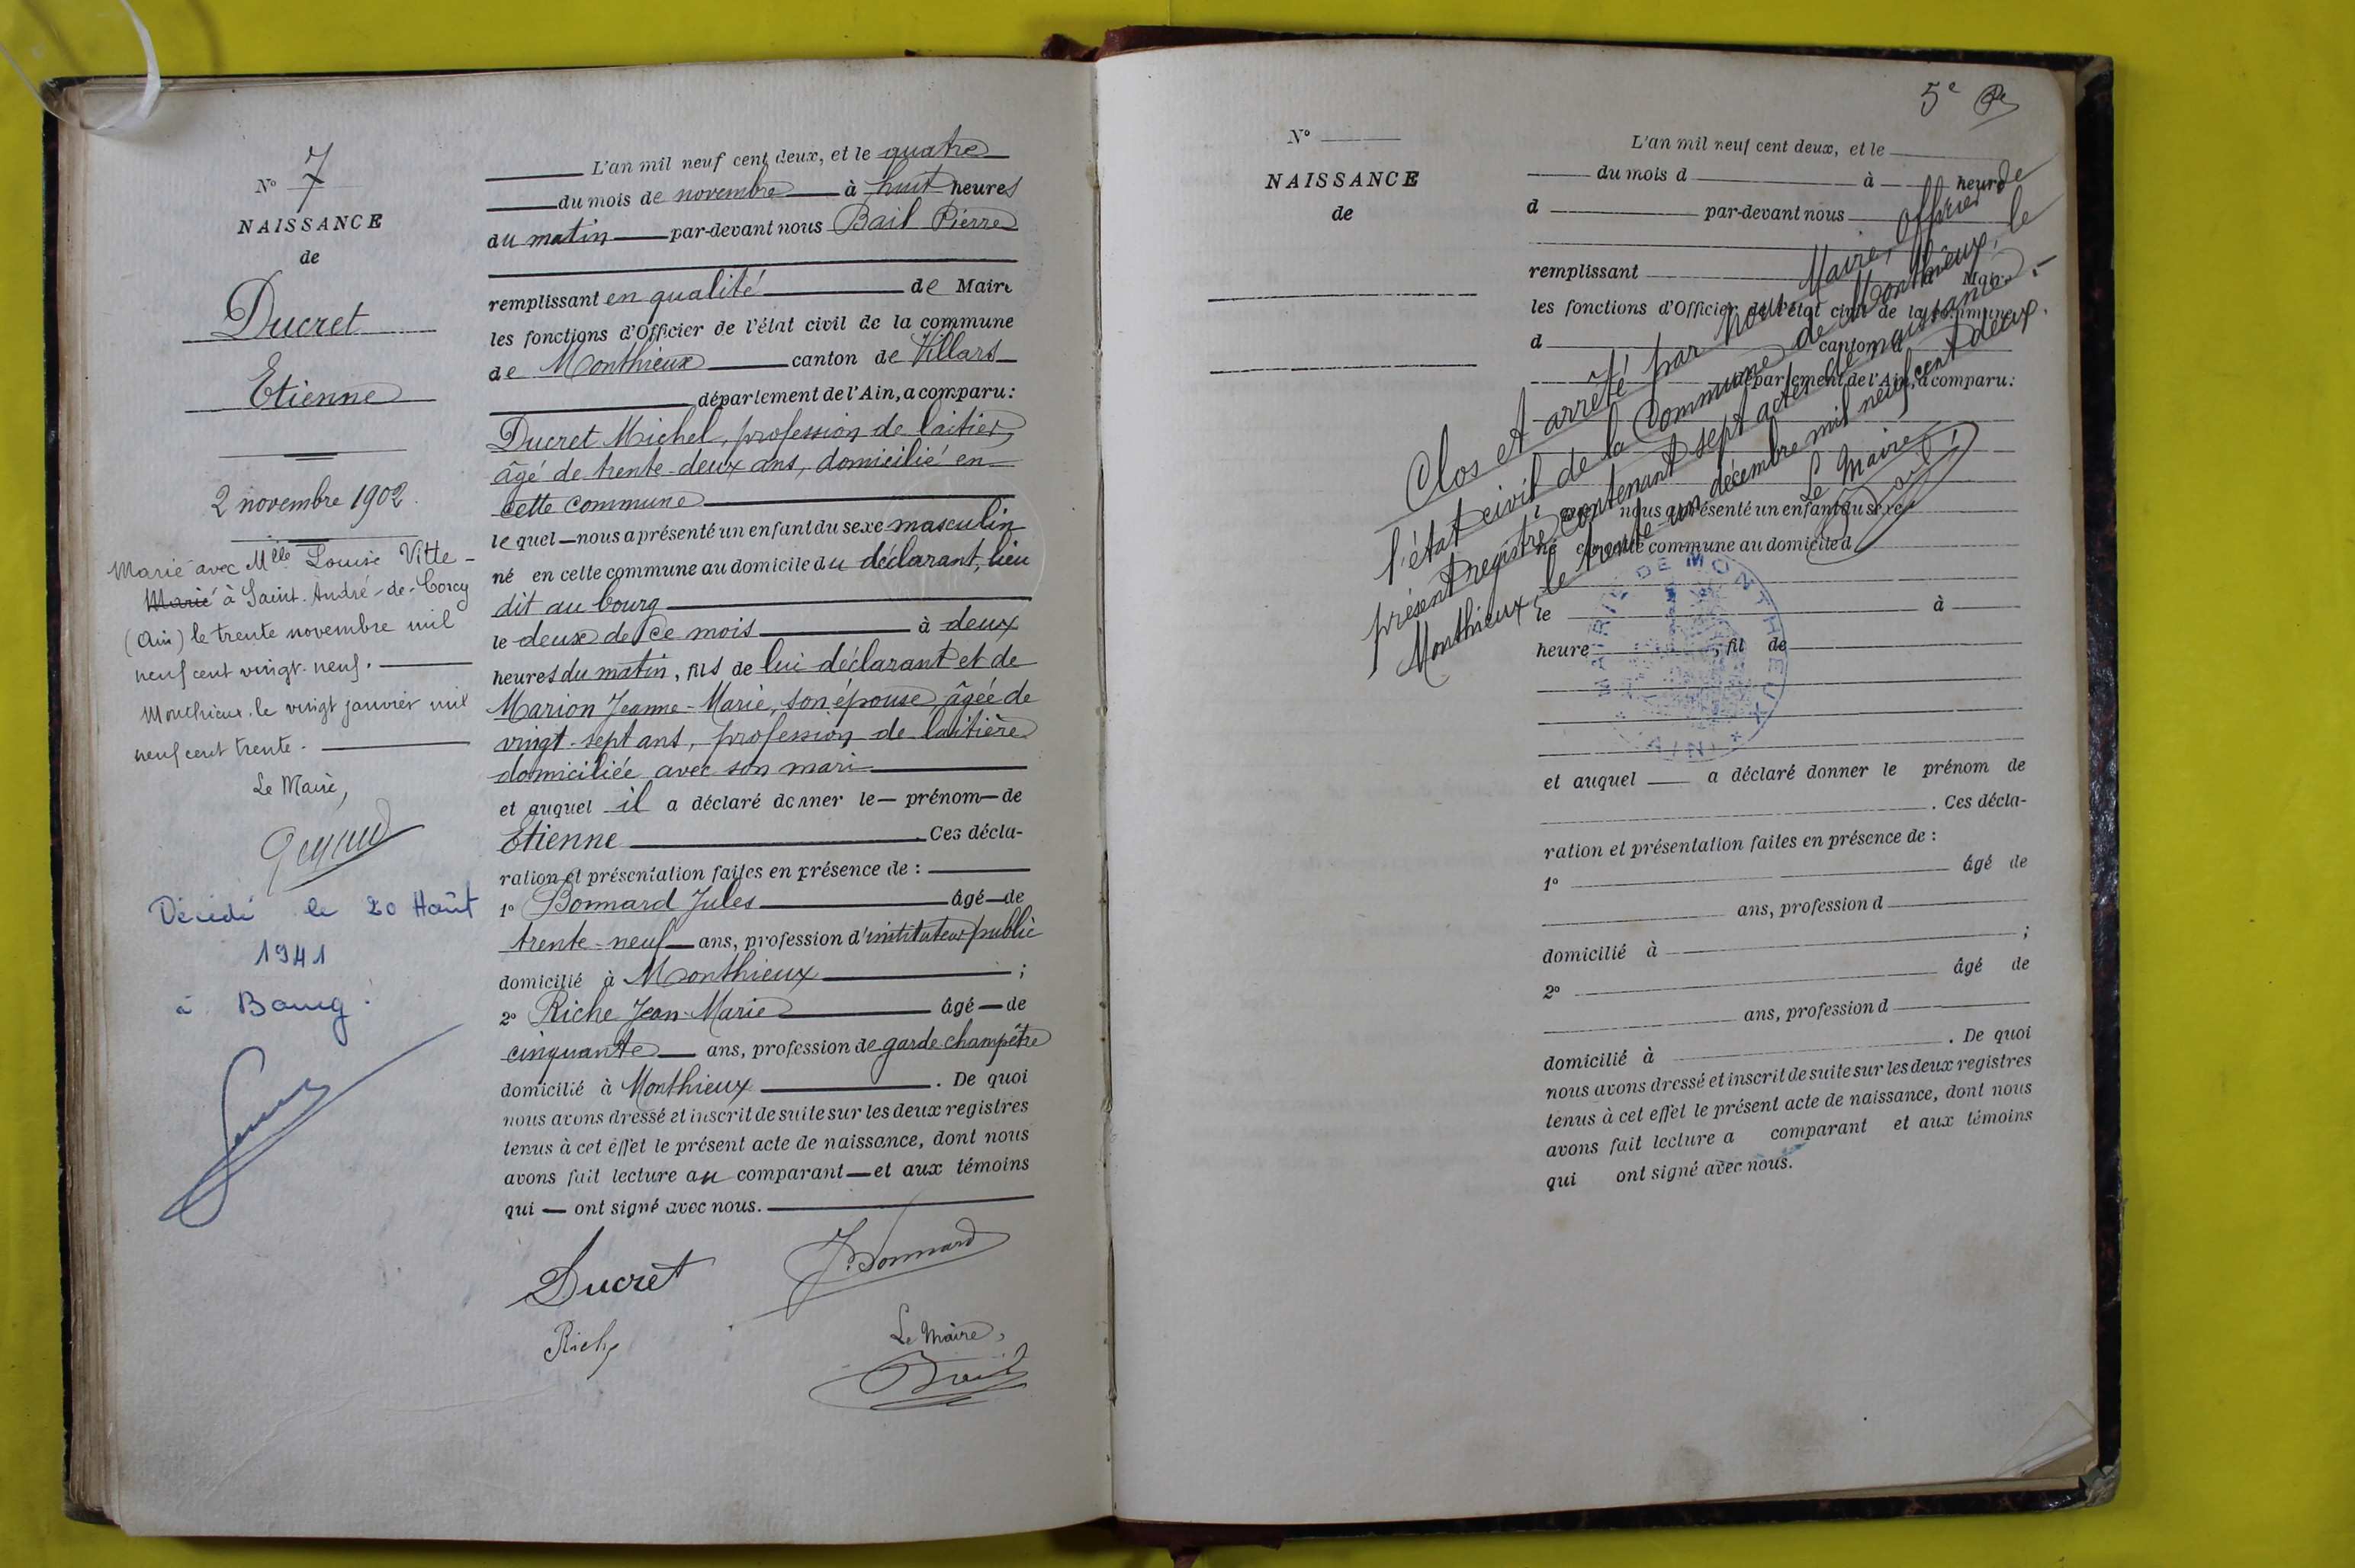 N° 7
NAISSANCE
de
Ducret
Etienne
2 novembre 1902.
Marié avec Mlle Louise Vitte -
Marié à Saint-André-de-Corcy
(Ain) le trente novembre mil
neuf cent vingt-neuf.
Monthieux, le vingt janvier mil
neuf cent trente.
Le Maire,
Décédé le 20 Août
1941
à Bourg.
L'an mil neuf cent deux, et le quatre
du mois de novembre à huit heures
du matin par-devant nous Bail Pierre
remplissant en qualité de Maire
les fonctions d'Officier de l'état civil de la commune
de Monthieux canton de Villars
département de l'Ain, a comparu:
Ducret Michel, profession de laitier,
âgé de trente-deux ans, domicilié en
cette commune
lequel nous a présenté un enfant du sexe masculin
né en cette commune au domicile du déclarant, lieu
dit au bourg
le deux de ce mois à deux
heures du matin, fils de lui déclarant et de
Marion Jeanne-Marie, son épouse âgée de
vingt-sept ans, profession de laitière
domiciliée avec son mari
et auquel il a déclaré donner le prénom de
Etienne. Ces décla-
ration et présentation faites en présence de :
1° Bonnard Jules âgé de
trente-neuf ans, profession d'instituteur public
domicilié à Monthieux ;
2° Riche Jean-Marie âgé de
cinquante ans, profession de garde-champêtre
domicilié à Monthieux. De quoi
nous avons dressé et inscrit de suite sur les deux registres
tenus à cet effet le présent acte de naissance, dont nous
avons fait lecture au comparant et aux témoins
qui ont signé avec nous.
Ducret J. Bonnard
Riche Le Maire,
Bail
5e
N°
NAISSANCE
de
L'an mil neuf cent deux, et le
du mois d à heure
d par-devant nous
remplissant Maire
les fonctions d'Officier de l'état civil de la commune
d canton d
département de l'Ain, a comparu:
nous a présenté un enfant du sexe
né en cette commune au domicile d
le à
heure , fil de
et auquel a déclaré donner le prénom de
. Ces décla-
ration et présentation faites en présence de :
1° âgé de
ans, profession d
domicilié à ;
2° âgé de
ans, profession d
domicilié à . De quoi
nous avons dressé et inscrit de suite sur les deux registres
tenus à cet effet le présent acte de naissance, dont nous
avons fait lecture a comparant et aux témoins
qui ont signé avec nous.
Clos et arrêté par nous Maire, Officier de
l'état civil de la Commune de Monthieux, le
présent registre contenant sept actes de naissance.-
Monthieux, le trente-un décembre mil neuf cent deux.
Le Maire
Bail
MAIRIE DE MONTHIEUX
(AIN)